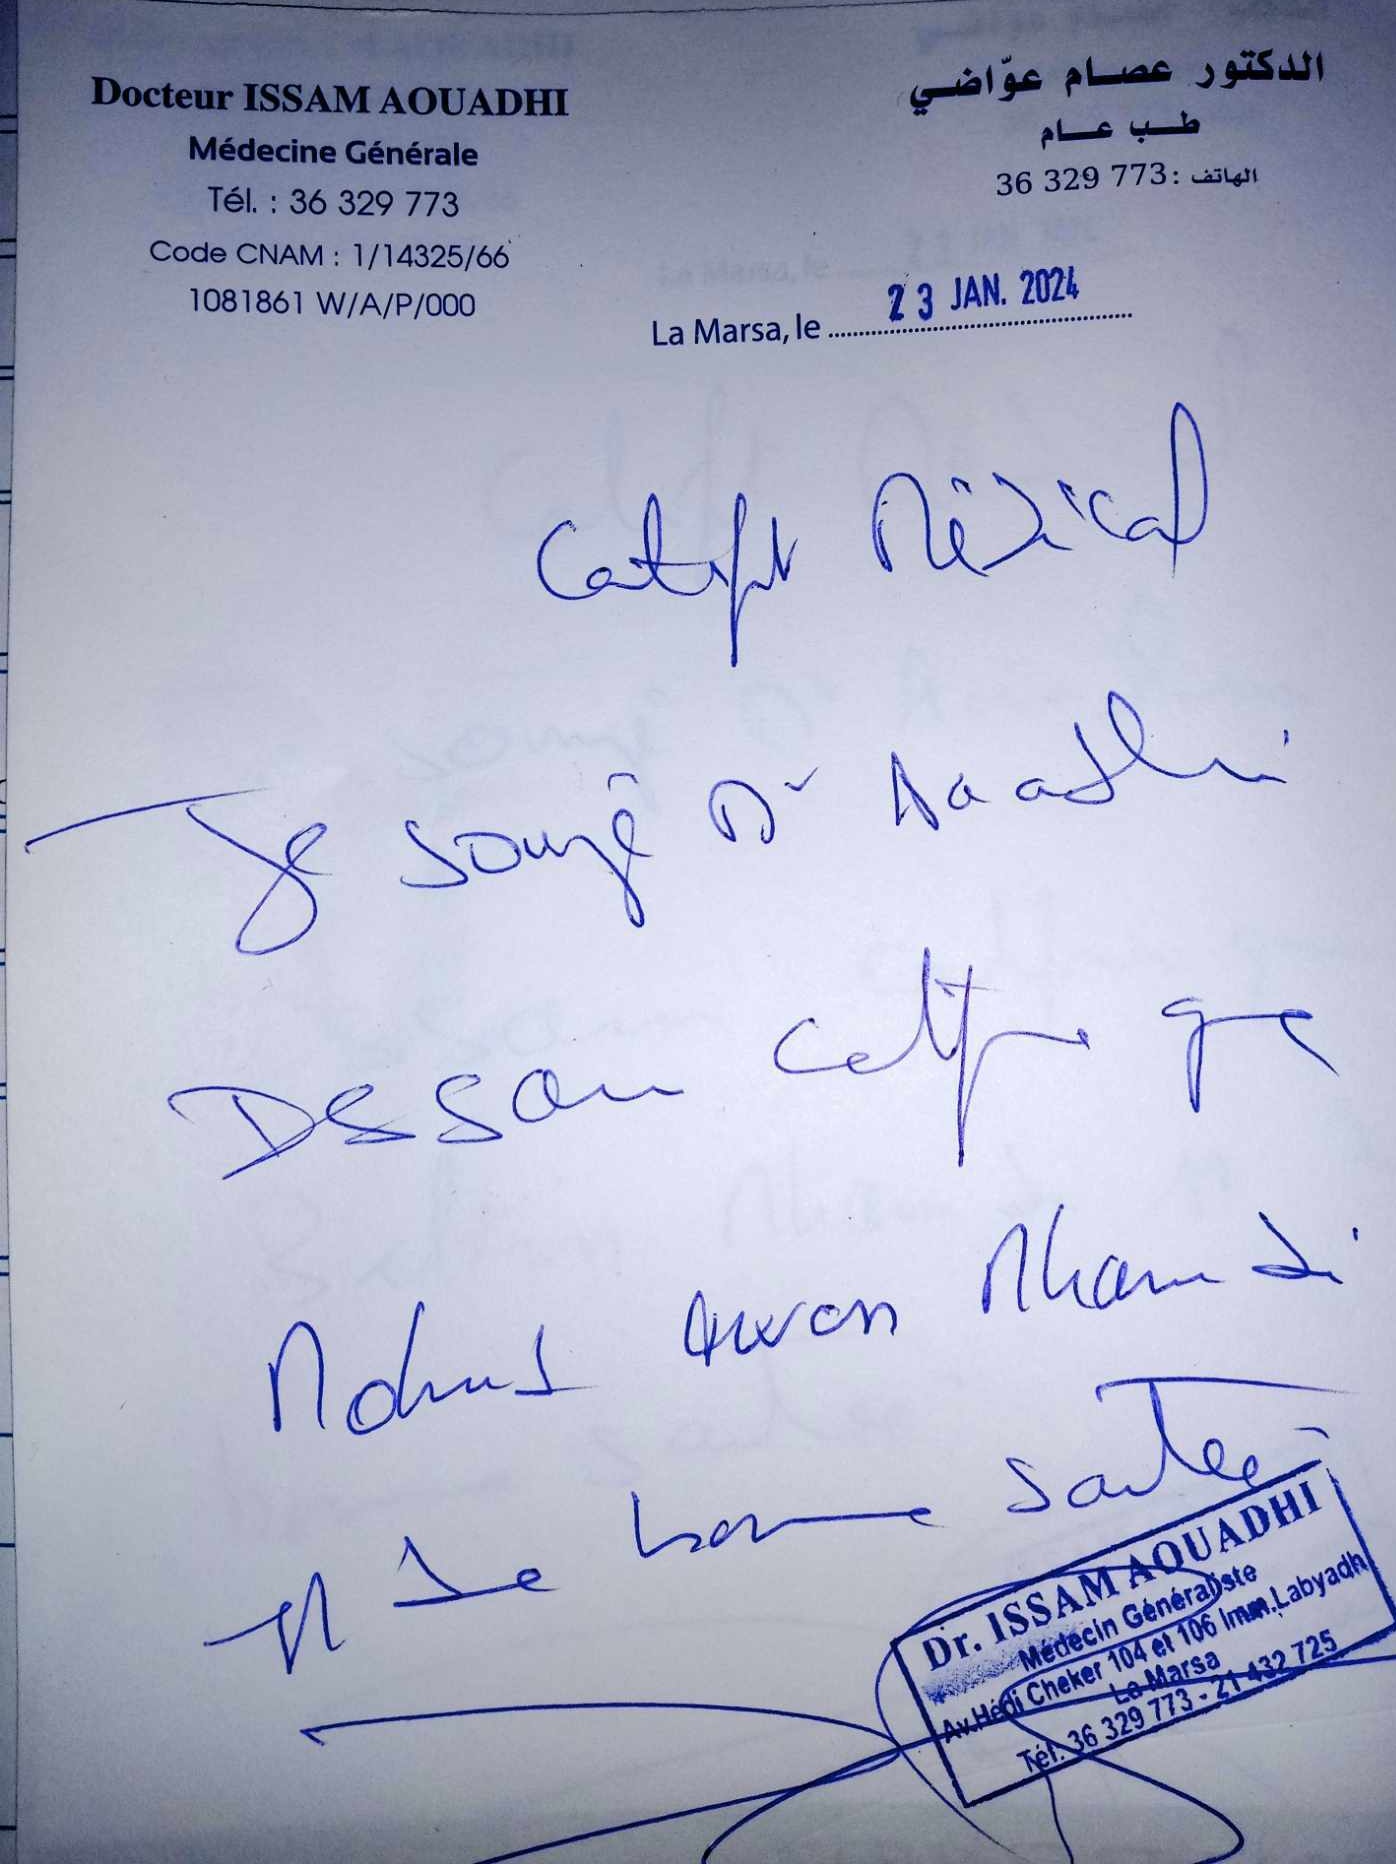 Docteur ISSAM AOUADHI
Médecine Générale
Tél. : 36 329 773
Code CNAM : 1/14325/66
1081861 W/A/P/000
الدكتور عصام عوّاضي
طب عام
الهاتف : 36 329 773
La Marsa, le 23 JAN. 2024
Certificat Médical
Je soussigné Dr Aouadhi
certifie que
Mohamed
est de bonne santé
Dr. ISSAM AOUADHI
Médecin Généraliste
Av.Hédi Cheker 104 et 106 Imm.Labyadh
La Marsa
Tél: 36 329 773 - 21 432 725